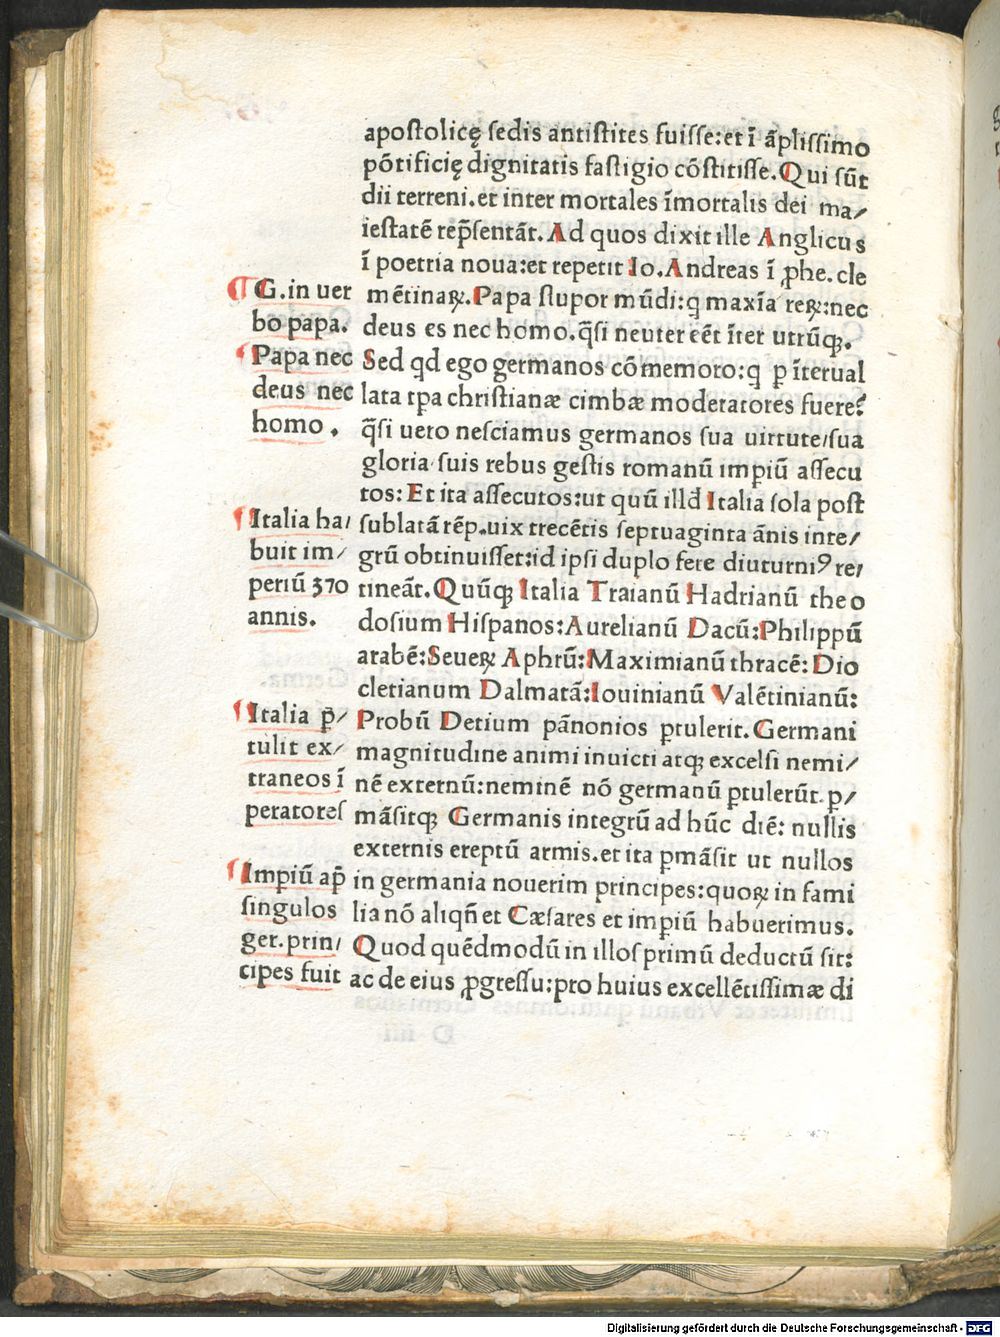 apostolicę sedis antistites fuisse:et ī āplissimo
pōtificię dignitatis fastigio cōstitisse.Qui sūt
dii terreni.et inter mortales īmortalis dei ma/
iestatē rep̄sentāt.Ad quos dixit ille Anglicus
ī poetria noua:et repetit Io.Andreas ī ꝓhe.cle
mētinaꝝ.Papa stupor mūdi:q maxīa reꝝ:nec
deus es nec homo.q̄si neuter eēt īter utrūqꝫ.
Sed qd ego germanos cōmemoro:q ꝑ īterual
lata tꝑa christianæ cimbæ moderatores fuere?
q̄si uero nesciamus germanos sua uirtute/sua
gloria suis rebus gestis romanū impiū assecu
tos:Et ita assecutos:ut quū illd Italia sola post
sublatā rēp.uix trecētis septuaginta ānis inte/
grū obtinuisset:id ipsi duplo fere diuturniꝰ re/
tineāt.Quūqꝫ Italia Traianū Hadrianū theo
dosium Hispanos:Aurelianū Dacū:Philippū
arabē:Seueꝝ Aphrū:Maximianū thracē:Dio
cletianum Dalmatā:Iouinianū Valētinianū:
Probū Detium pānonios ꝑtulerit.Germani
magnitudine animi inuicti atqꝫ excelsi nemi/
nē externū:neminē nō germanū ꝑtulerūt.ꝑ/
māsitqꝫ Germanis integrū ad hūc diē: nullis
externis ereptū armis.et ita ꝑmāsit ut nullos
in germania nouerim principes:quoꝝ in fami
lia nō aliqn̄ et Cæsares et impiū habuerimus.
Quod quēdmodū in illos primū deductū sit:
ac de eius ꝓgressu:pro huius excellētissimæ di
¶G.in uer
bo papa.
¶Papa nec
deus nec
homo.
¶Italia ha/
buit im/
periū 370
annis.
¶Italia p̄/
tulit ex/
traneos ī
peratores
¶Impiū ap̄
singulos
ger.prin/
cipes fuit
Digitalisierung gefördert durch die Deutsche Forschungsgemeinschaft - DFG